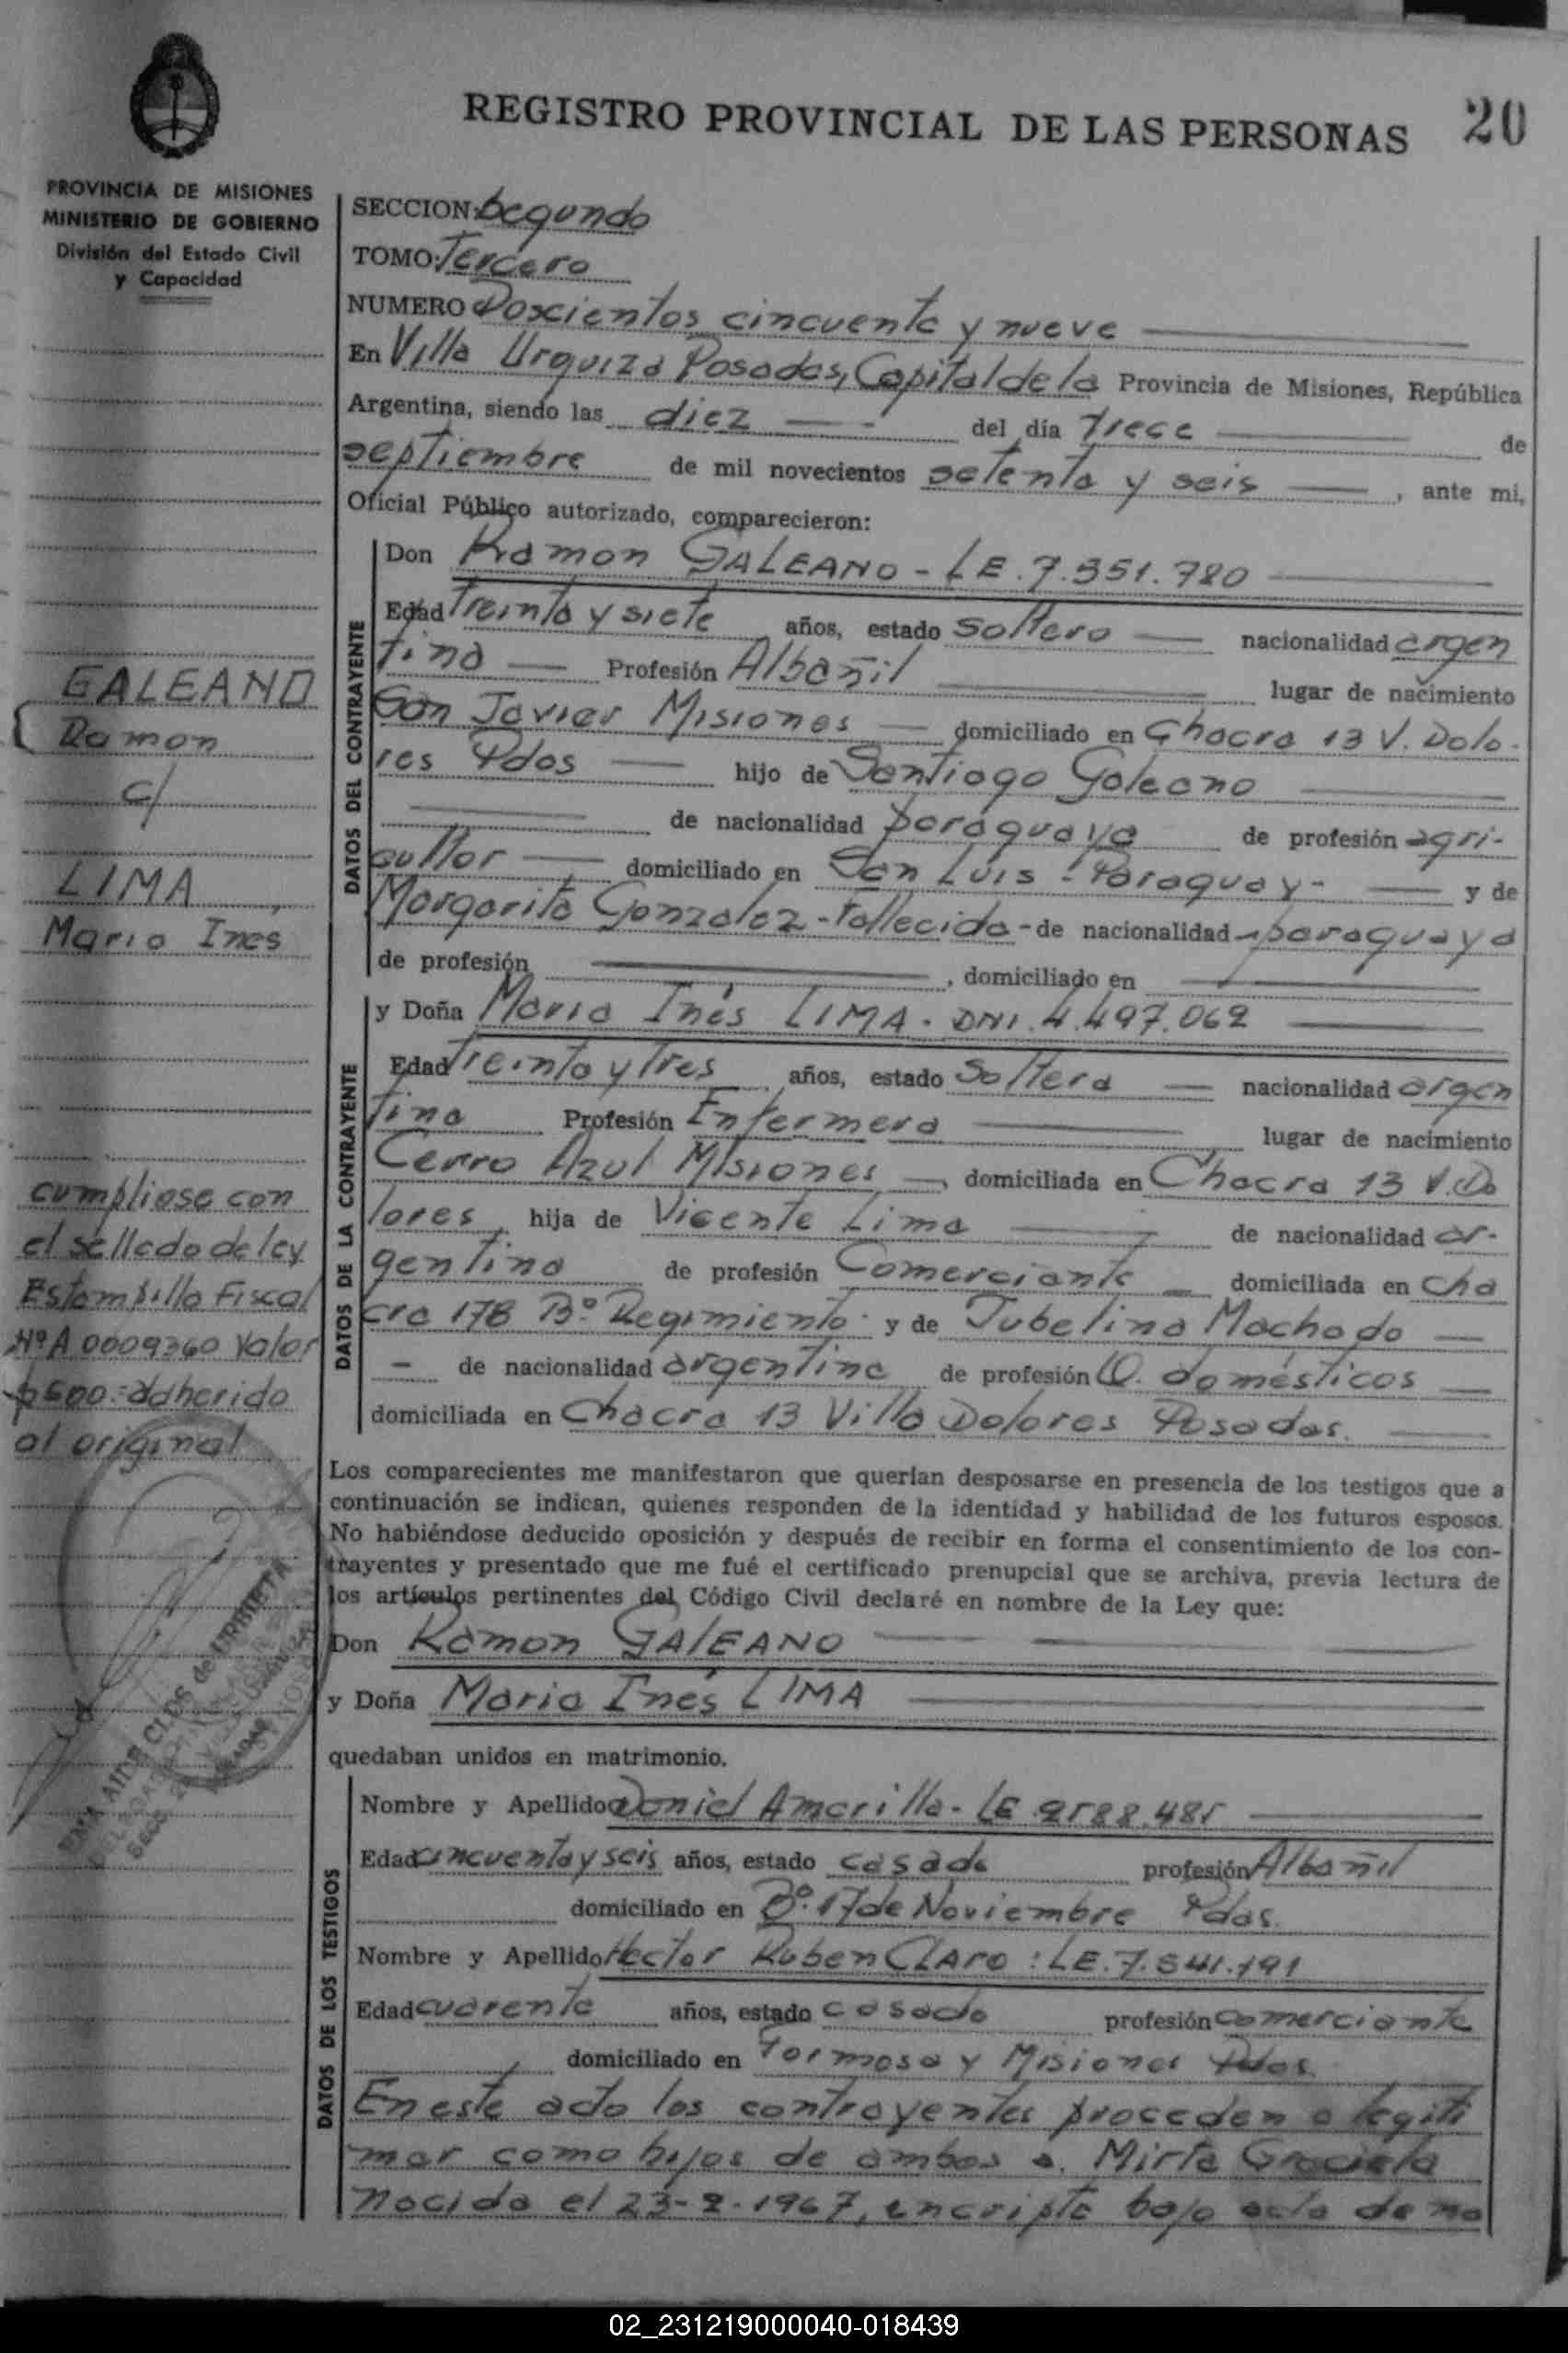 REGISTRO PROVINCIAL DE LAS PERSONAS 20
PROVINCIA DE MISIONES
MINISTERIO DE GOBIERNO
División del Estado Civil
y Capacidad
SECCION: Segundo
TOMO: Tercero
NUMERO Doscientos cincuenta y nueve
En Villa Urquiza Posadas, Capital de la Provincia de Misiones, República
Argentina, siendo las diez del día trece de
septiembre de mil novecientos setenta y seis, ante mi,
Oficial Público autorizado, comparecieron:
DATOS DEL CONTRAYENTE
Don Ramon GALEANO - LE. 7.551.780
Edad Treinta y siete años, estado Soltero nacionalidad argen
tina Profesión Albañil lugar de nacimiento
San Javier Misiones domiciliado en Chacra 13 V. Dolo-
res Pdas hijo de Santiago Galeano
de nacionalidad paraguaya de profesión agri-
cultor domiciliado en San Luis - Paraguay - y de
Margarita Gonzalez - Fallecida - de nacionalidad paraguaya
de profesión , domiciliado en
DATOS DE LA CONTRAYENTE
y Doña Maria Inés LIMA - DNI. 4.497.062
Edad Treinta y Tres años, estado Soltera nacionalidad argen
tina Profesión Enfermera lugar de nacimiento
Cerro Azul Misiones , domiciliada en Chacra 13 V. Do
lores, hija de Vicente Lima de nacionalidad ar-
gentina de profesión Comerciante domiciliada en Cha
cra 178 Bº. Regimiento y de Jubelina Machado
- de nacionalidad argentina de profesión Q. domésticos
domiciliada en Chacra 13 Villa Dolores Posadas.
GALEANO
Ramon
c/
LIMA,
Maria Ines
cumpliose con
el sellado de ley
Estampilla Fiscal
Nº A 0009360 Valor
$500.- adherido
al original
Los comparecientes me manifestaron que querían desposarse en presencia de los testigos que a
continuación se indican, quienes responden de la identidad y habilidad de los futuros esposos.
No habiéndose deducido oposición y después de recibir en forma el consentimiento de los con-
trayentes y presentado que me fué el certificado prenupcial que se archiva, previa lectura de
los artículos pertinentes del Código Civil declaré en nombre de la Ley que:
Don Ramon GALEANO
y Doña Maria Inés LIMA
quedaban unidos en matrimonio.
AIDE CLOS de URRIETA
DATOS DE LOS TESTIGOS
Nombre y Apellido Daniel Amarilla - LE
Edad cincuenta y seis años, estado casado profesión Albañil
domiciliado en Bº. 17 de Noviembre Pdas.
Nombre y Apellido Hector Ruben CLARO : LE. 7.541.191
Edad cuarenta años, estado casado profesión comerciante
domiciliado en Formosa y Misiones Pdas.
En este acto los contrayentes proceden a legiti
mar como hijos de ambos a. Mirta Graciela
nacida el 23-2-1967, encripta bajo acta de na
02_231219000040-018439